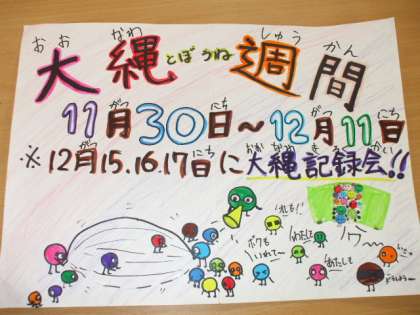 おお なわ しゅう かん
大縄とぼうね週間
がつ にち がつ にち
11月30日～12月11日
がつ にち おお なわ き ろく かい
※12月15.16.17日に大縄記録会!!
ボクも
いれて～
わたしも
わたしも